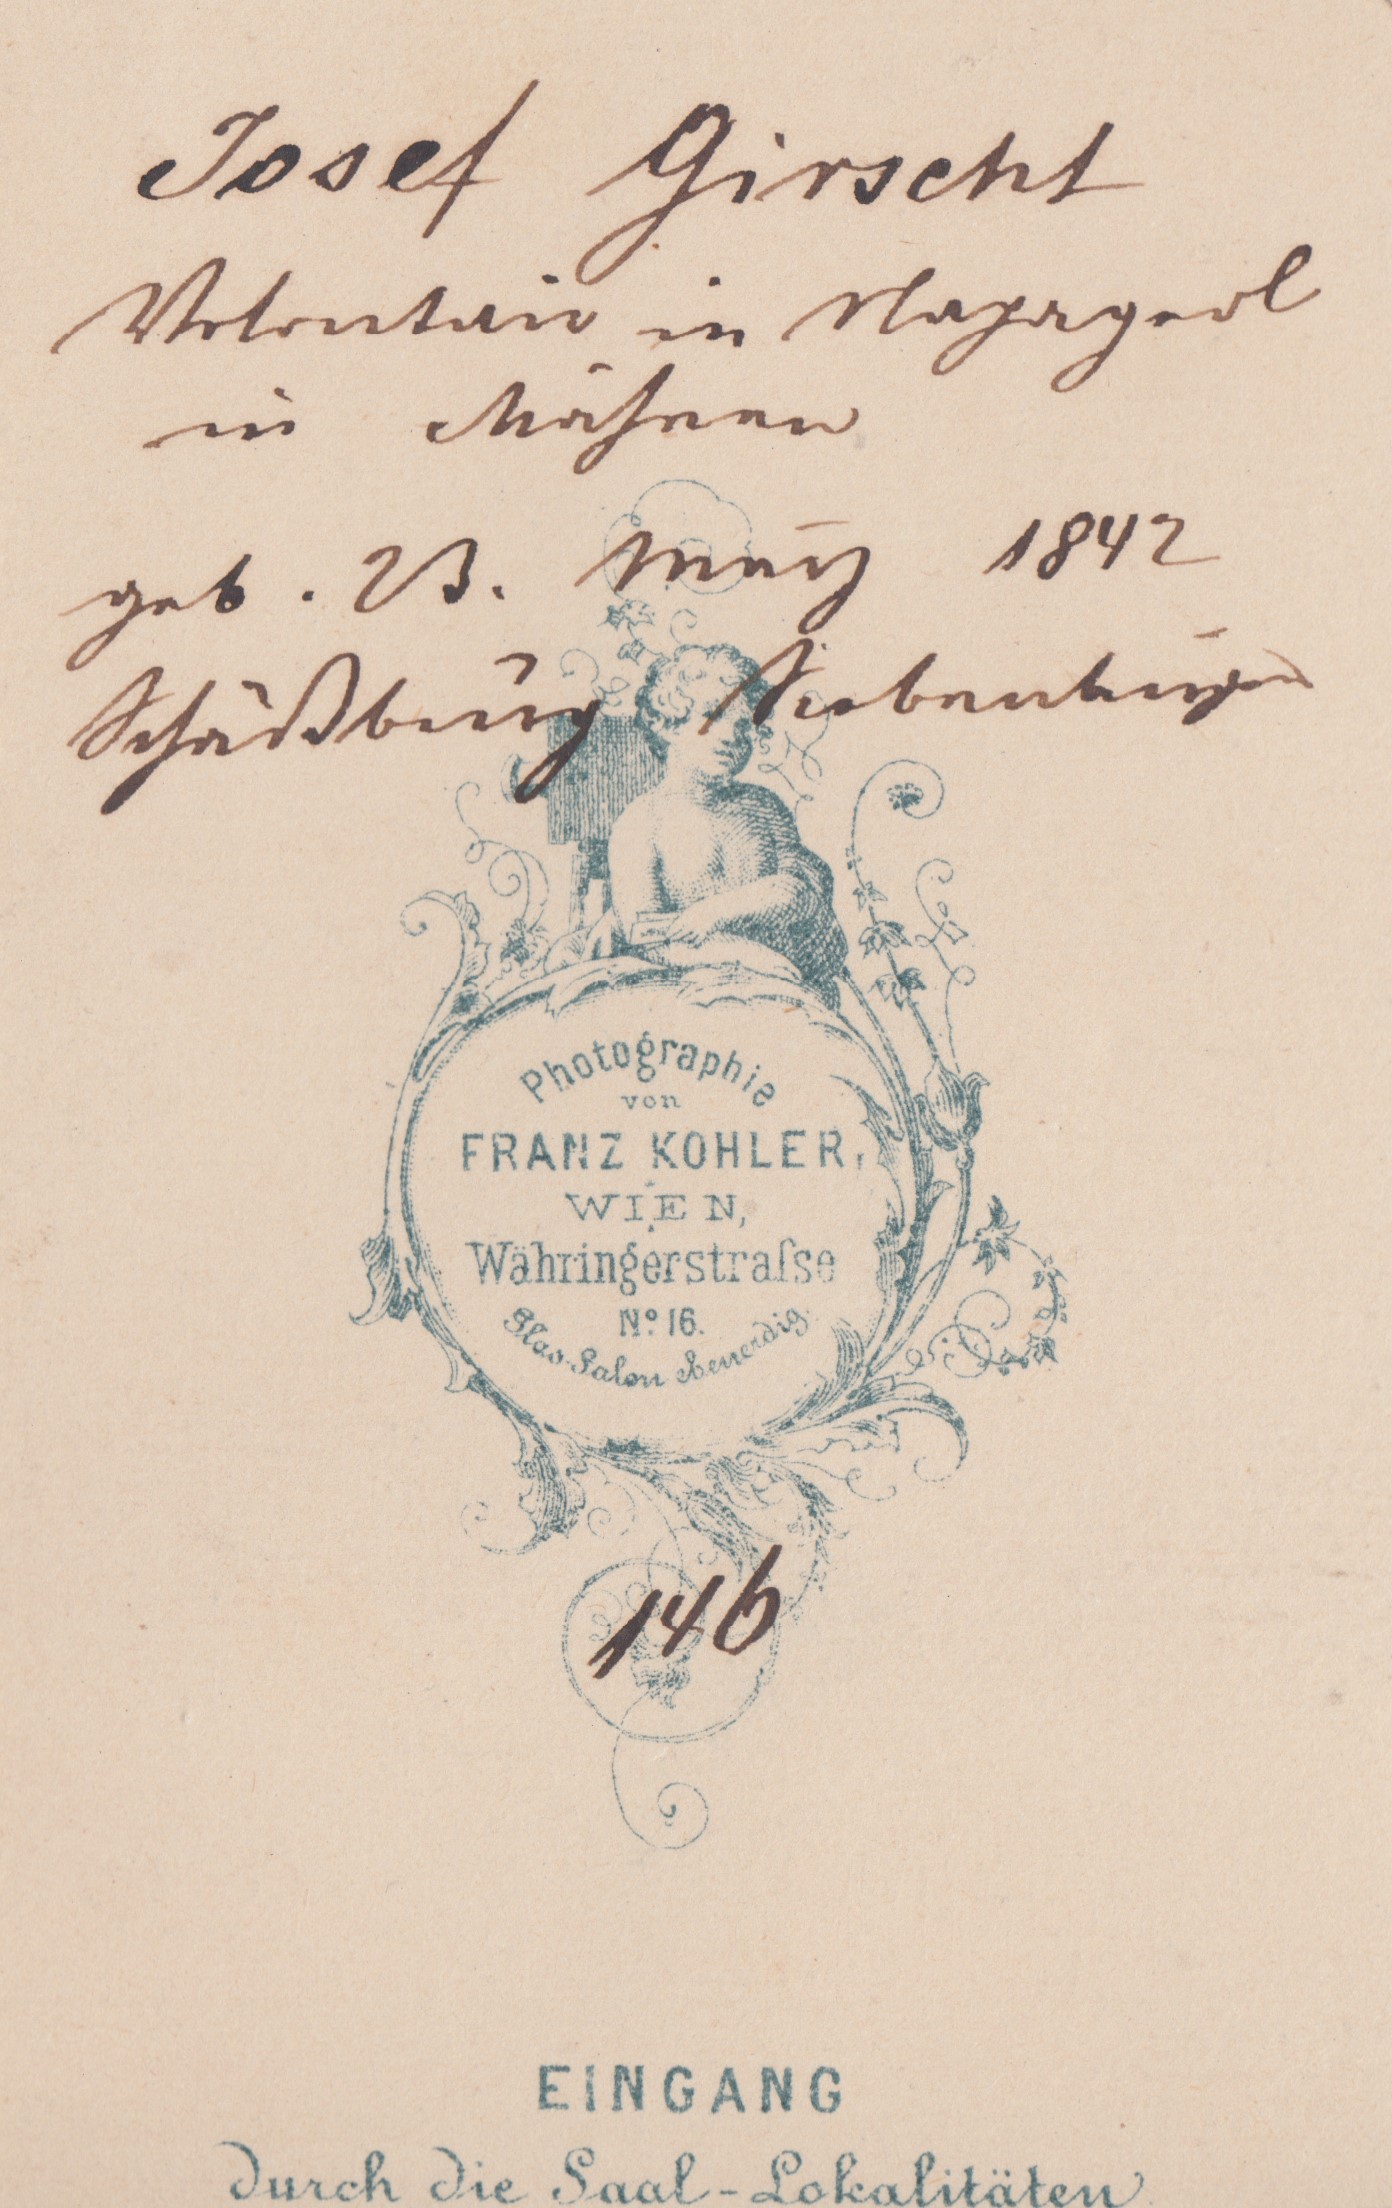 Josef Girscht
Volontair in Napagedl
in Mähren
geb. 23. März 1842
Schäßburg Siebenbürgen
Photographie
von
FRANZ KOHLER,
WIEN,
Währingerstraſse
No. 16.
Glas-Salon ebenerdig.
146
EINGANG
durch die Saal-Lokalitäten